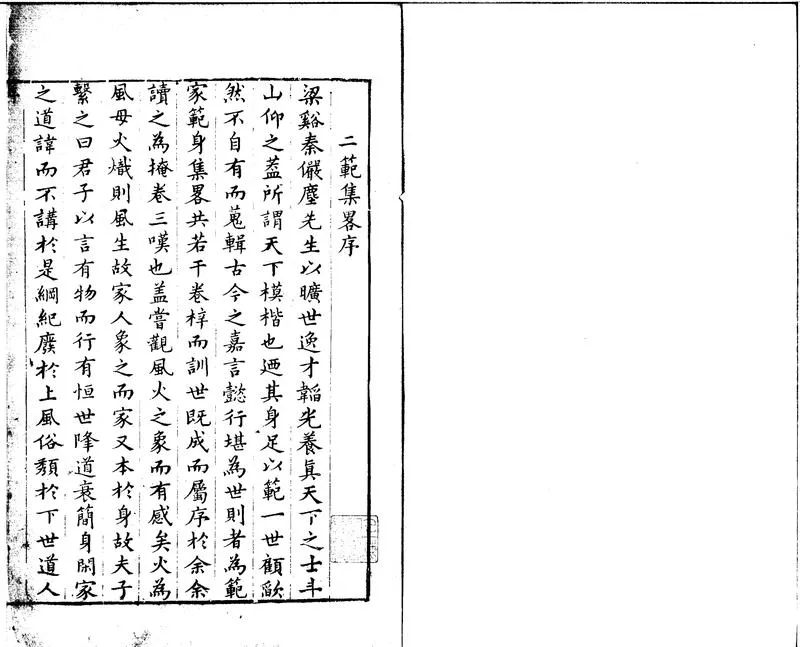 二範集畧序
梁谿秦儼塵先生以曠世逸才韜光養真天下之士斗
山仰之葢所謂天下模楷也迺其身足以範一世顧歉
然不自有而蒐輯古今之嘉言懿行堪為世則者為範
家範身集畧共若干卷梓而訓世既成而屬序於余余
讀之為掩卷三嘆也盖嘗觀風火之象而有感矣火為
風毋火熾則風生故家人象之而家又本於身故夫子
繫之曰君子以言有物而行有恒世降道衰簡身閑家
之道諱而不講於是綱紀廢於上風俗頹於下世道人